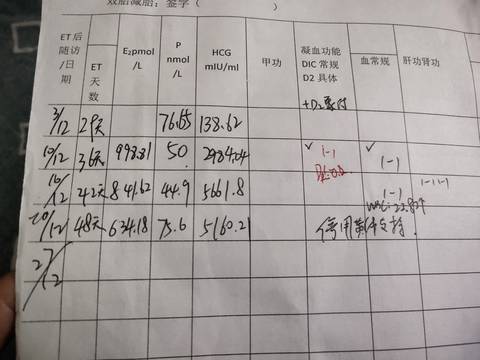 双胎减胎：签字（ ）
ET后随访/日期 ET天数 E₂pmol/L P nmol/L HCG mIU/ml 甲功 凝血功能 DIC 常规 D2 具体 血常规 肝功肾功
3/12 29天 76.65 138.62
10/12 36天 998.81 50. 2984.04 ✓ (-) ✓ (-)
16/12 42天 841.62 44.9 5661.8 (-) (-)(-)
20/12 48天 634.18 75.6 5160.21 停用黄体支持.
27/12